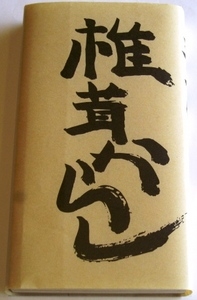 椎茸からし